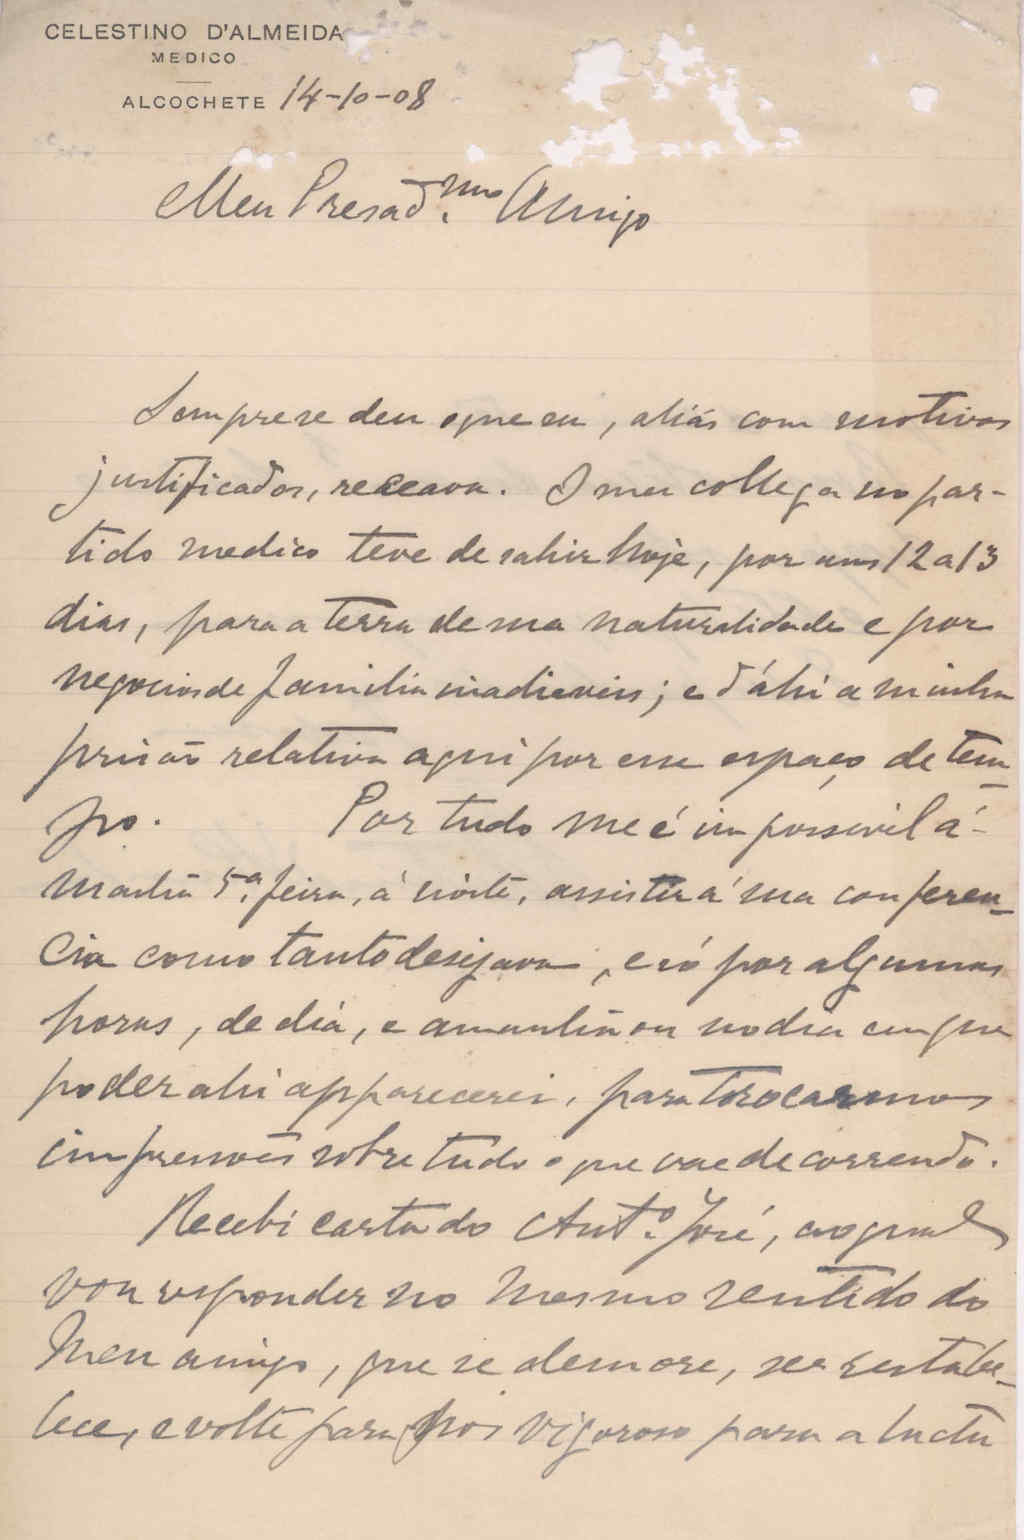 CELESTINO D'ALMEIDA
MEDICO
ALCOCHETE 14-10-08
Meu Presad.mo Amigo
Sempre se deu o que eu, aliás com motivos
justificados, receava. O meu collega no par-
tido medico teve de sahir hoje, por uns 12 a 13
dias, para a terra de sua naturalidade e por
negocios de familia inadieveis; e d'áhi a minha
prisão relativa aqui por esse espaço de tem-
po. Por tudo me é impossivel á-
manhã 5.ª feira, á noite, assistir á sua conferen-
cia como tanto desejava, e só por algumas
horas, de dia, e amanhã ou no dia em que
poder ahi apparecerei, para trocarmos
impressões sobre tudo o que vae decorrendo.
Recebi carta do Ant.º José, ao qual
vou responder no mesmo sentido do
Meu amigo, que se demore, se restabe-
lece, e volte para nós vigoroso para a lucta